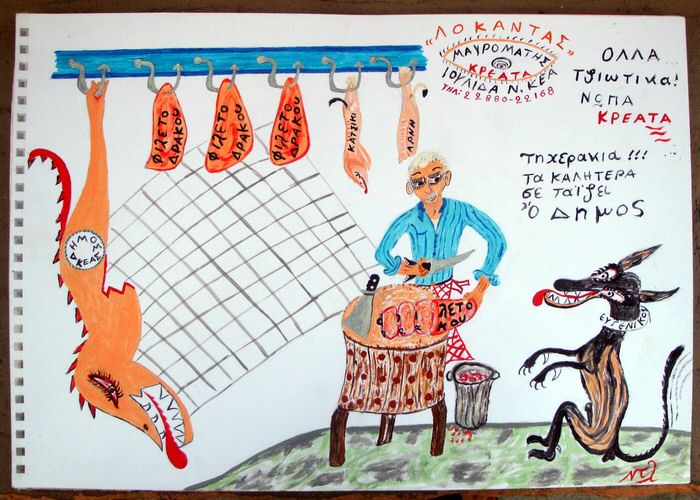 "ΛΟΚΑΝΤΑΣ"
ΜΑΥΡΟΜΑΤΗΣ
ΚΡΕΑΤΑ
ΙΟΥΛΙΔΑ Ν. ΚΕΑ
ΤΗΛ: 22880-22168
ΟΛΛΑ
Τζιωτικα!
ΝΩΠΑ
ΚΡΕΑΤΑ
Τηχερακια!!!
ΤΑ ΚΑΛΗΤΕΡΑ
ΣΕ ΤΑΪΖΕΙ
Ο ΔΗΜΟΣ
ΦΙΛΕΤΟ
ΔΡΑΚΟΥ
ΦΙΛΕΤΟ
ΔΡΑΚΟΥ
ΦΙΛΕΤΟ
ΔΡΑΚΟΥ
ΚΑΤΣΙΚΙ
ΑΡΝΗ
ΔΗΜΟΣ ΚΕΑΣ
ΛΕΤΟ
ΑΚΟΥ
ΕΥΓΕΝΙΚΟΥ